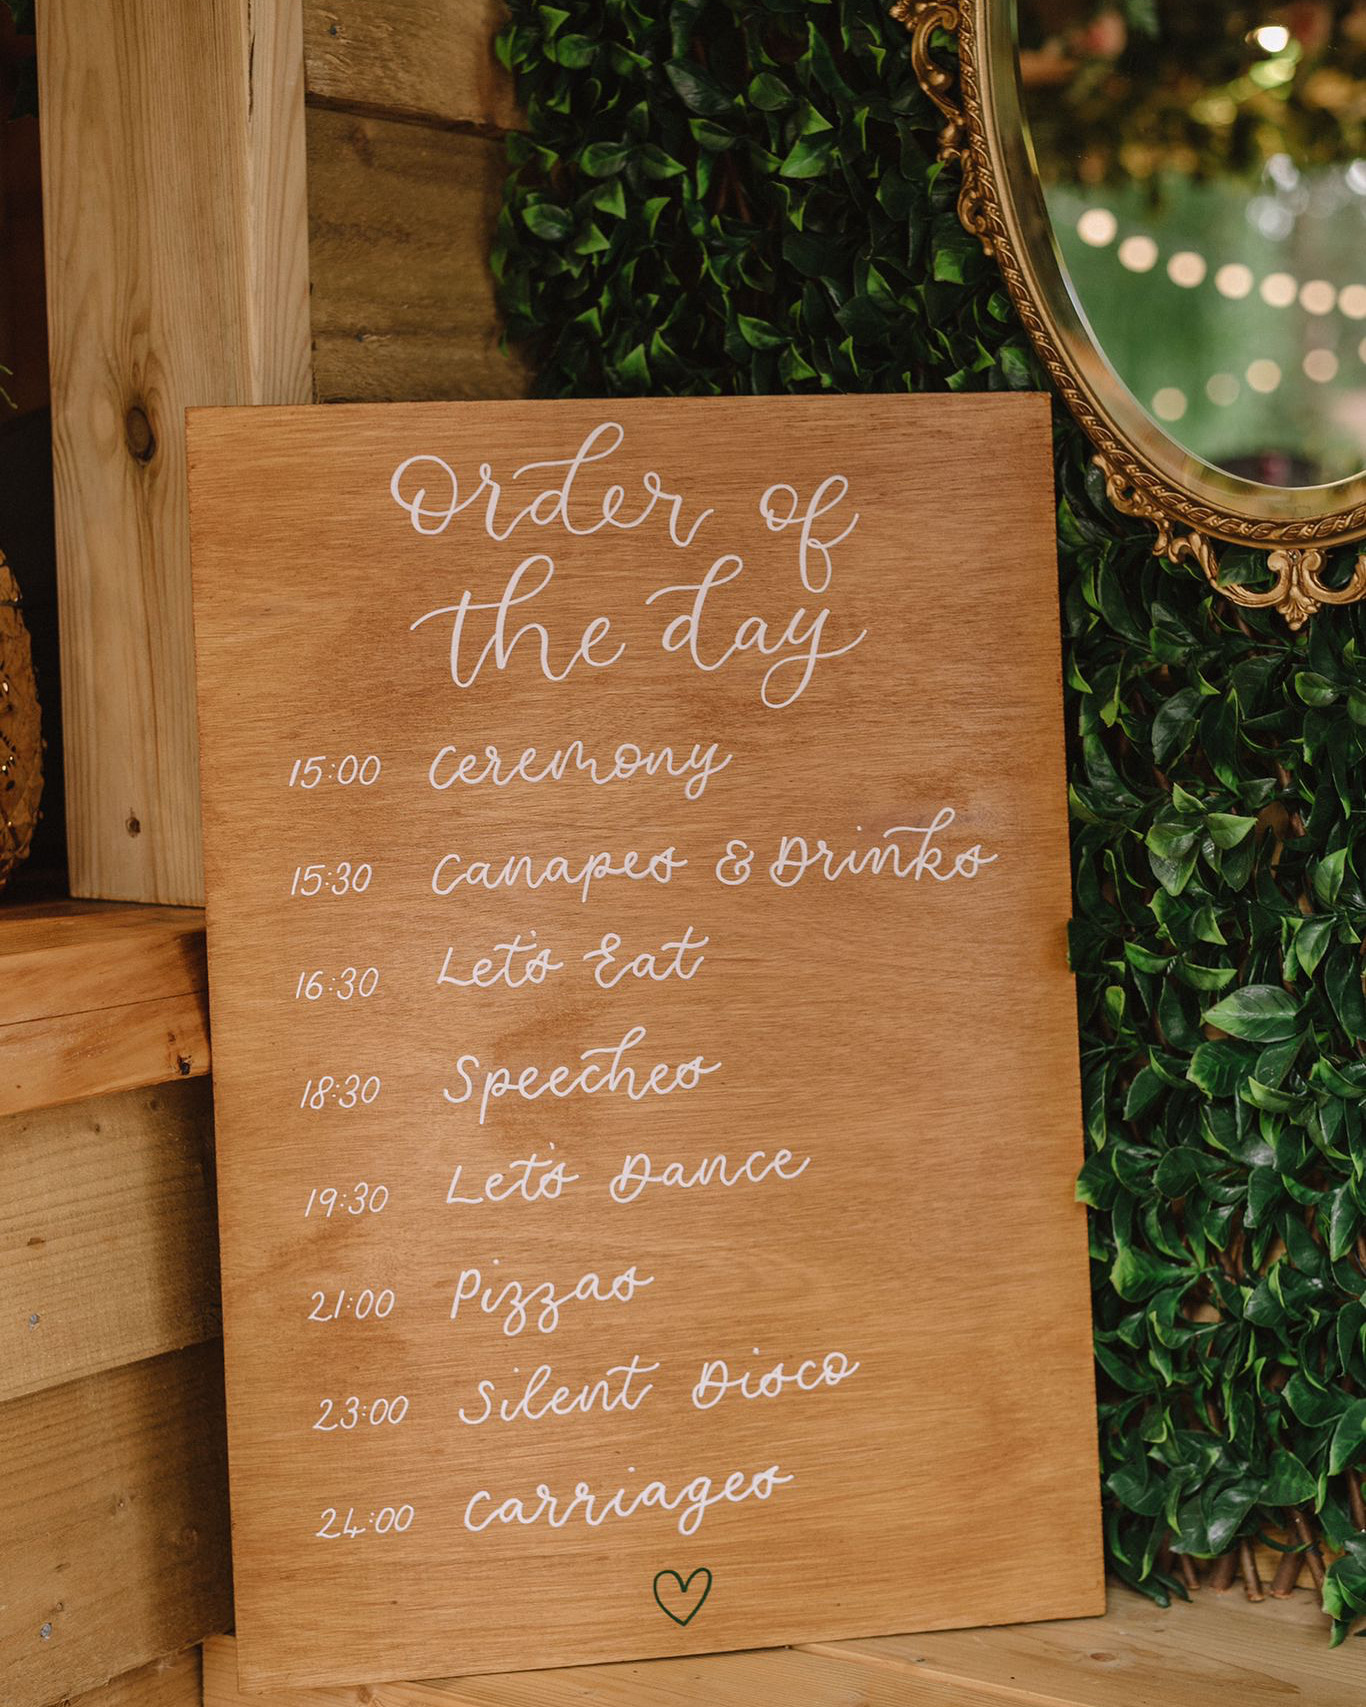 Order of
the day
15:00 Ceremony
15:30 Canapes & Drinks
16:30 Let's Eat
18:30 Speeches
19:30 Let's Dance
21:00 Pizzas
23:00 Silent Disco
24:00 Carriages